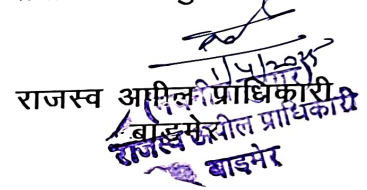 1/4/2025
राजस्व अपील प्राधिकारी
बाड़मेर
राजस्व अपील प्राधिकारी
बाड़मेर